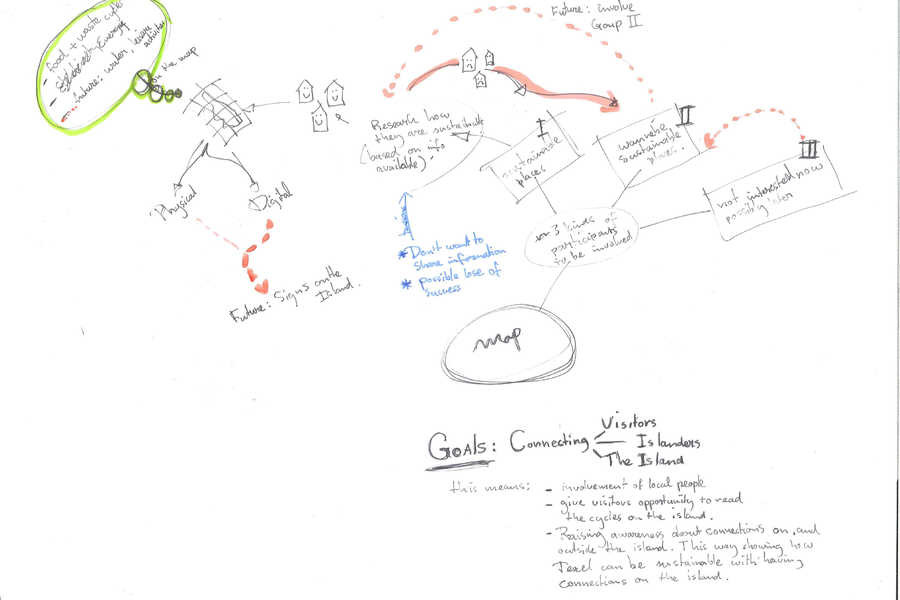 - food + waste cycle
- Energy
- future: water, activities
on the map
Future: involve
Group II
Research how
they are sustainable
(based on info
available).
I
sustainable
places
II
wannabe
sustainable
places.
III
not interested now
possibly later
3 kinds of
participants
to be involved
Physical
Digital
Future: Signs on the
Island.
* Don't want to
share information
* possible lose of
success
map
GOALS: Connecting
Visitors
Islanders
The Island
this means:
- involvement of local people
- give visitors opportunity to read
the cycles on the island.
- Raising awareness about connections on, and
outside the island. This way showing how
Texel can be sustainable with having
connections on the island.